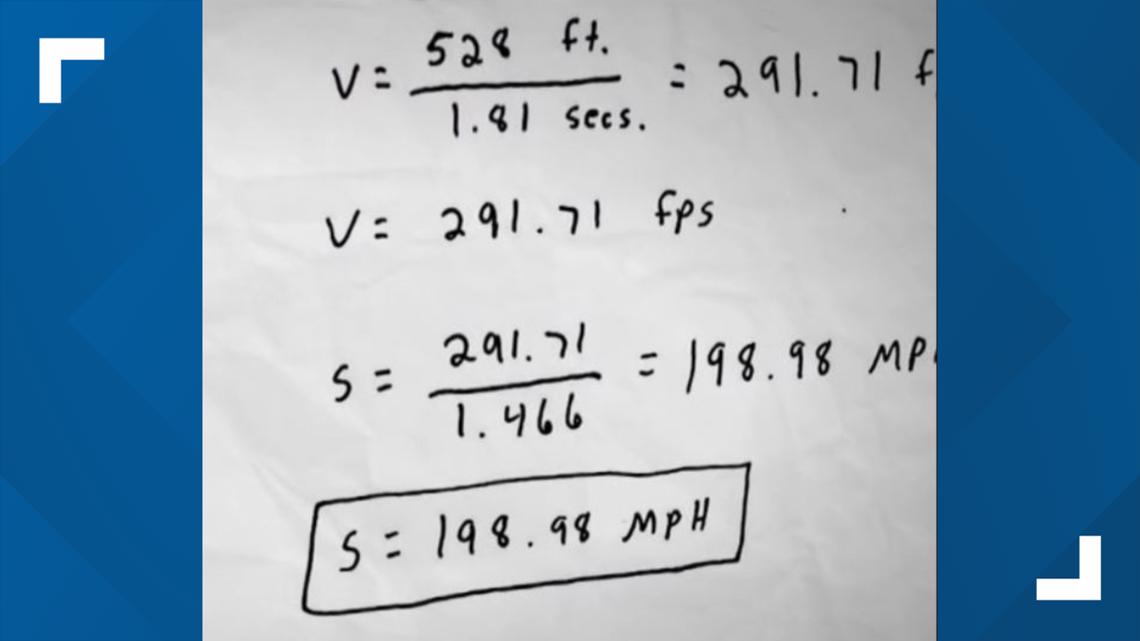 V = 528 ft. / 1.81 secs. = 291.71 f
V = 291.71 fps
S = 291.71 / 1.466 = 198.98 MP
S = 198.98 MPH